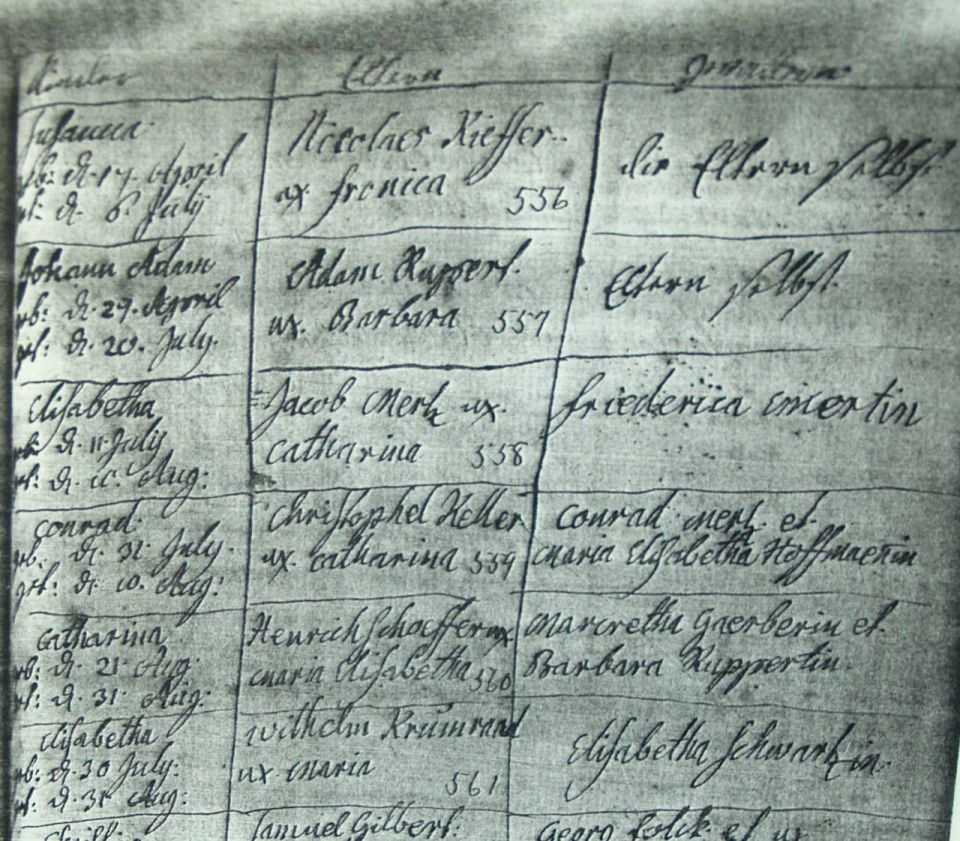 Kinder
Eltern
Susanna
geb: d. 17. April
get: d. 6. July
Nicolaes Kieffer
ux fronica 556
die Eltern selbst
Johann Adam
geb: d. 29. April
get: d. 20. July.
Adam Ruppert.
ux. Barbara 557
Eltern selbst.
Elisabetha
d. 11 July
get: d. 10. Aug:
Jacob Mertz ux.
Catharina 558
friederica Mertin
Conrad.
geb. d. 31. July.
get: d. 10. Aug:
Christophel Heller
ux. Catharina 559
Conrad Mertz et.
Maria Elisabetha Hoffmaenin
Catharina
geb: d. 21 Aug:
get: d. 31. Aug:
Henrich Schaeffer ux.
Maria Elisabetha 560
Marcretha Gaerberin et.
Barbara Ruppertin.
Elisabetha
geb: d. 30 July.
get: d. 31 Aug:
Wilhelm Krumraad
ux Maria
561
Elisabetha Schwartzin.
Samuel Gilbert.
Georg Folck et ux